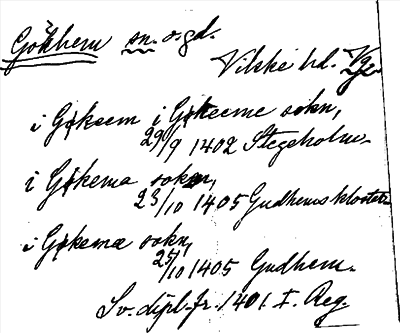 Gökhem sn. o. gd.
Vilske hd. Vg.
i Gøkeem i Gøkeeme sokn,
29/9 1402 Stegeholm
i Gøkema sokn,
23/10 1405 Gudhems kloster
i Gøkemæ sokn,
25/10 1405 Gudhem.
Sv. dipl. fr. 1401 I. Reg